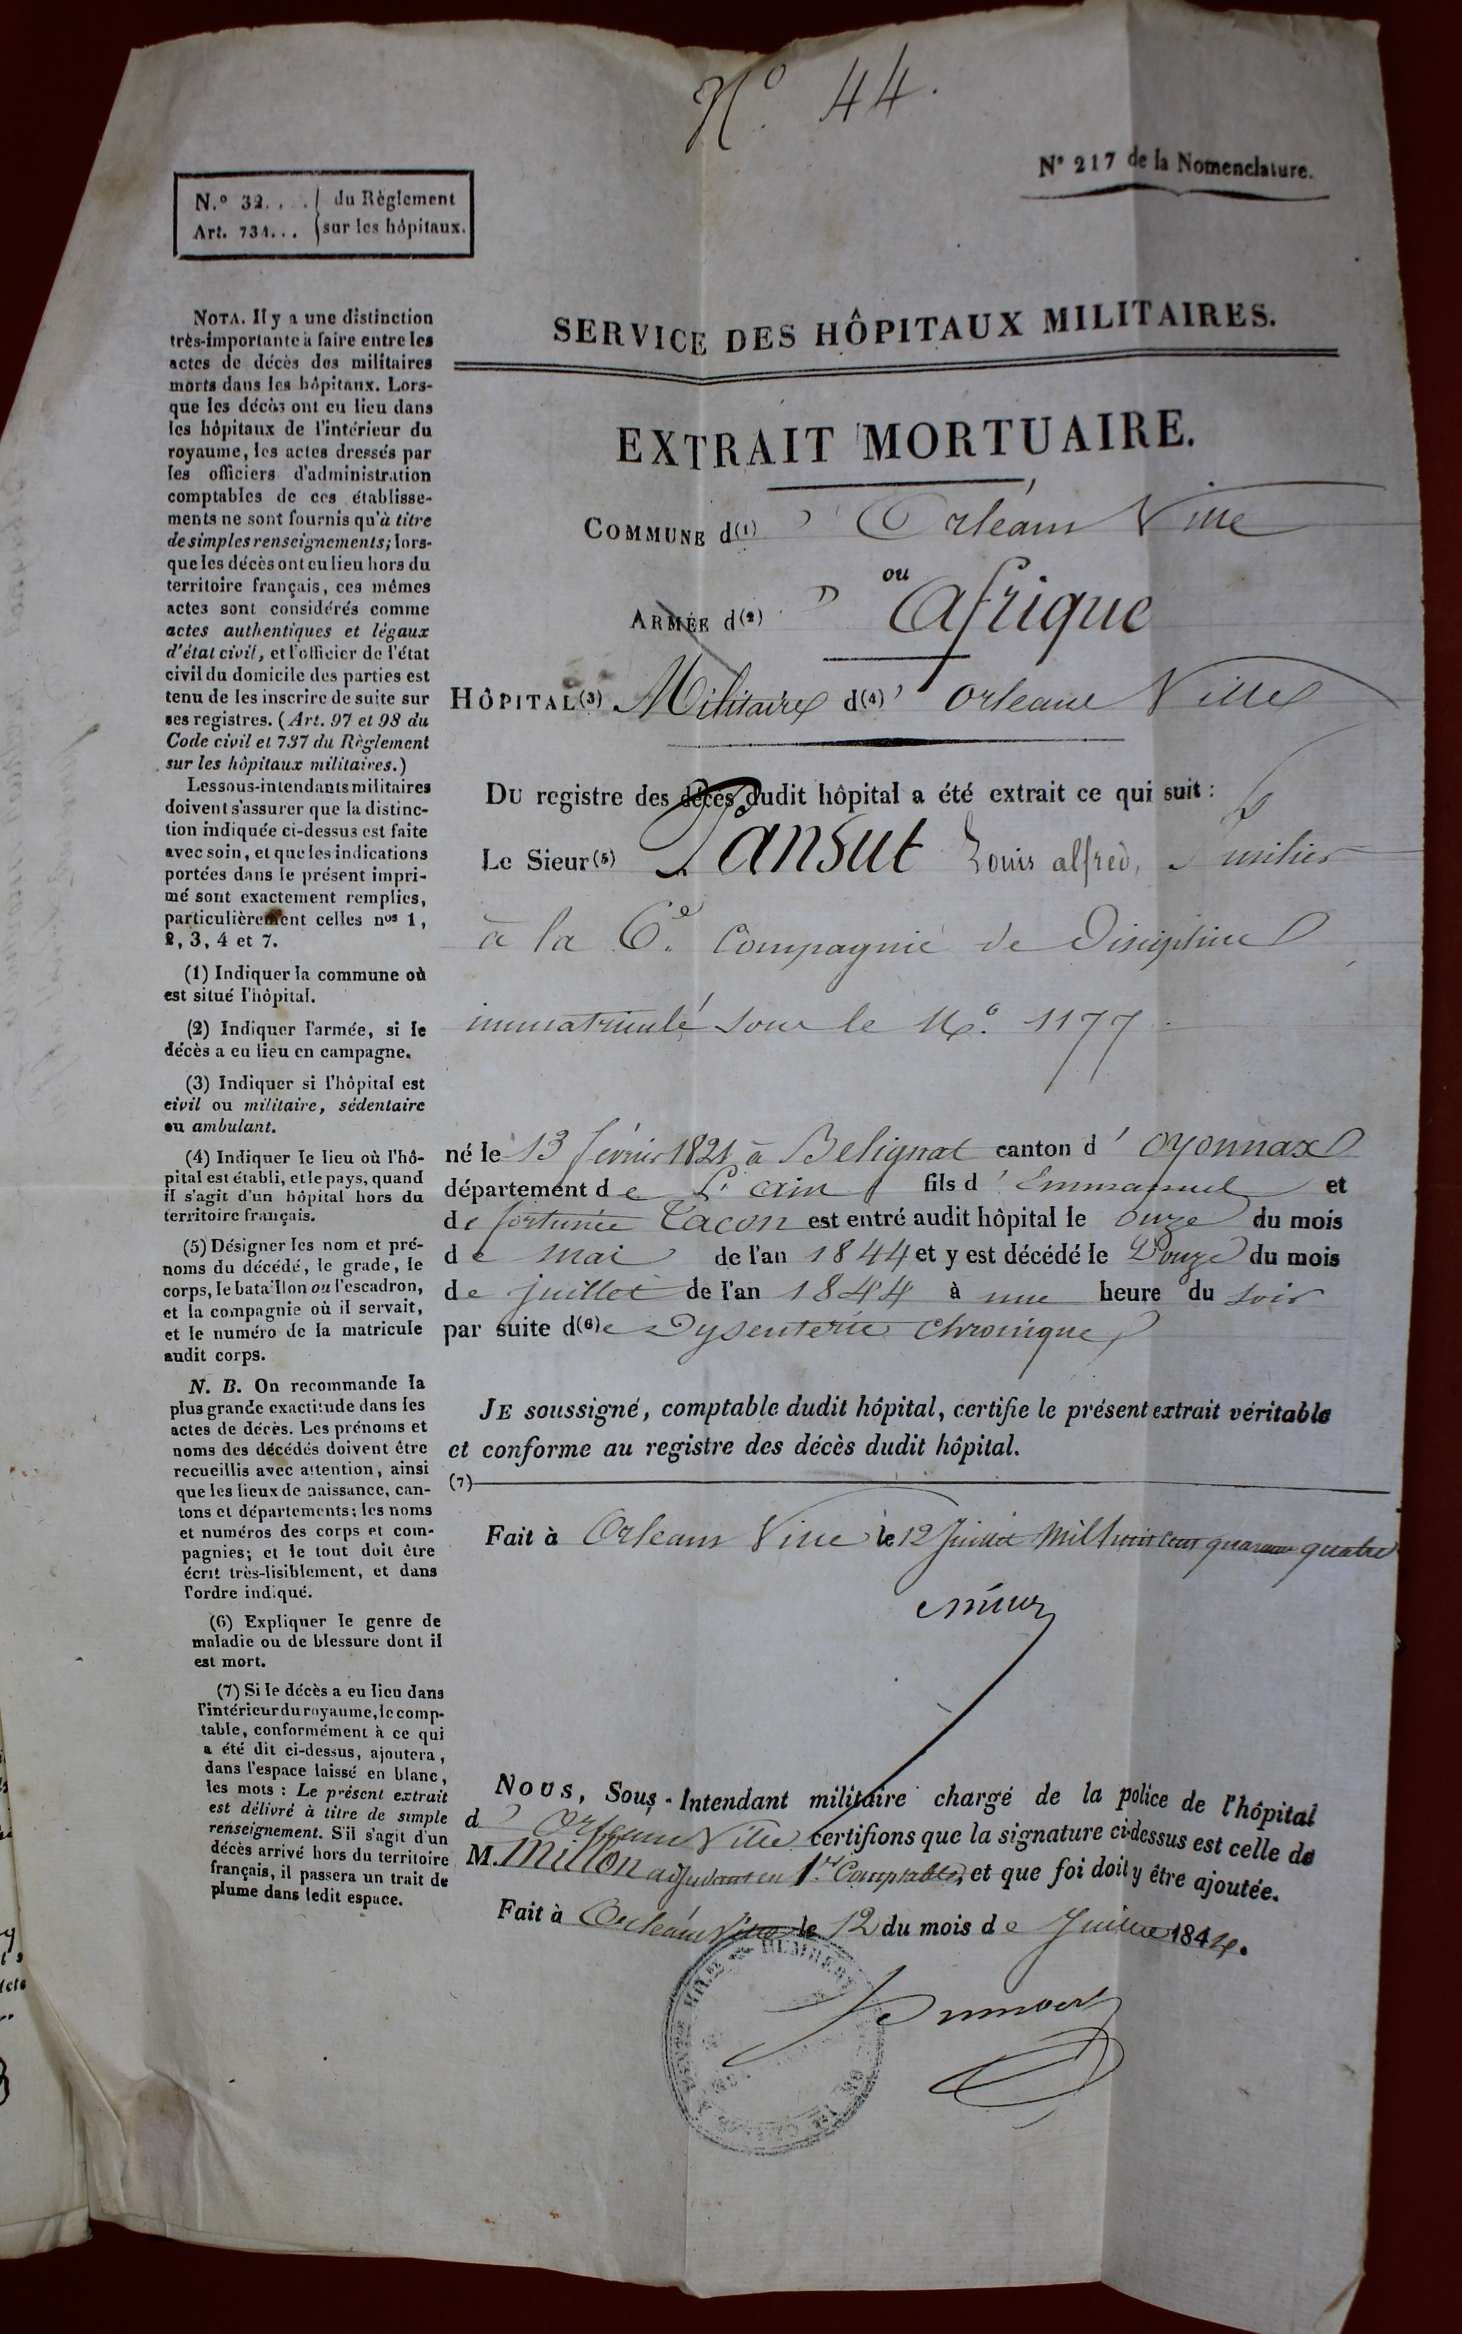 N° 44.
N° 217 de la Nomenclature.
N.° 32. . . . du Règlement
Art. 731. . . sur les hôpitaux.
NOTA. Il y a une distinction
très-importante à faire entre les
actes de décès des militaires
morts dans les hôpitaux. Lors-
que les décès ont eu lieu dans
les hôpitaux de l'intérieur du
royaume, les actes dressés par
les officiers d'administration
comptables de ces établisse-
ments ne sont fournis qu'à titre
de simples renseignements; lors-
que les décès ont eu lieu hors du
territoire français, ces mêmes
actes sont considérés comme
actes authentiques et légaux
d'état civil, et l'officier de l'état
civil du domicile des parties est
tenu de les inscrire de suite sur
ses registres. (Art. 97 et 98 du
Code civil et 737 du Règlement
sur les hôpitaux militaires.)
Les sous-intendants militaires
doivent s'assurer que la distinc-
tion indiquée ci-dessus est faite
avec soin, et que les indications
portées dans le présent impri-
mé sont exactement remplies,
particulièrement celles nos 1,
2, 3, 4 et 7.
(1) Indiquer la commune où
est situé l'hôpital.
(2) Indiquer l'armée, si le
décès a eu lieu en campagne.
(3) Indiquer si l'hôpital est
civil ou militaire, sédentaire
ou ambulant.
(4) Indiquer le lieu où l'hô-
pital est établi, et le pays, quand
il s'agit d'un hôpital hors du
territoire français.
(5) Désigner les nom et pré-
noms du décédé, le grade, le
corps, le bataillon ou l'escadron,
et la compagnie où il servait,
et le numéro de la matricule
audit corps.
N. B. On recommande la
plus grande exactitude dans les
actes de décès. Les prénoms et
noms des décédés doivent être
recueillis avec attention, ainsi
que les lieux de naissance, can-
tons et départements; les noms
et numéros des corps et com-
pagnies; et le tout doit être
écrit très-lisiblement, et dans
l'ordre indiqué.
(6) Expliquer le genre de
maladie ou de blessure dont il
est mort.
(7) Si le décès a eu lieu dans
l'intérieur du royaume, le comp-
table, conformément à ce qui
a été dit ci-dessus, ajoutera,
dans l'espace laissé en blanc,
les mots : Le présent extrait
est délivré à titre de simple
renseignement. S'il s'agit d'un
décès arrivé hors du territoire
français, il passera un trait de
plume dans ledit espace.
SERVICE DES HÔPITAUX MILITAIRES.
EXTRAIT MORTUAIRE.
COMMUNE d(1) ' Orléans Ville
ou
ARMÉE d(2) ' Afrique
HÔPITAL(3) Militaire d(4)' Orleans Ville
DU registre des décès dudit hôpital a été extrait ce qui suit :
Le Sieur(5) Pansut Louis alfred, fusilier
à la 6e. Compagnie de Discipline
immatriculé sous le No. 1177
né le 13 février 1821 à Belignat canton d' oyonnax
département de L'ain fils d'Emmanuel et
de fortunée Tacon est entré audit hôpital le onze du mois
de mai de l'an 1844 et y est décédé le Douze du mois
de juillet de l'an 1844 à une heure du soir
par suite d(6)e Dysenterie Chronique
JE soussigné, comptable dudit hôpital, certifie le présent extrait véritable
et conforme au registre des décès dudit hôpital.
(7)
Fait à Orleans Ville le 12 Juillet Mil huit cent quarante quatre
NOUS, Sous-Intendant militaire chargé de la police de l'hôpital
d' Orleans Ville certifions que la signature ci-dessus est celle de
M. Millon adjudant en 1er Comptable, et que foi doit y être ajoutée.
Fait à Orleans Ville le 12 du mois de Juillet 1844.
HUMBERT